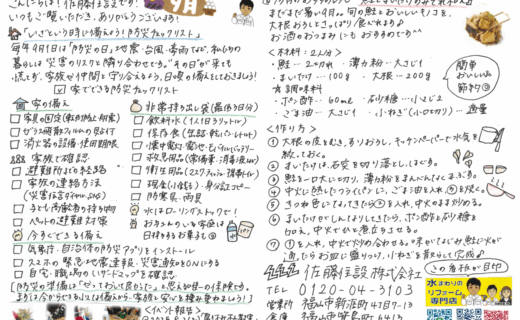 こんにちは！佐藤住設です。
いつもご覧いただき、ありがとうございます！
9月
「いざという時に備えよう！防災チェックリスト」
毎年9月1日は「防災の日」。地震・台風・豪雨など、私たちの
暮らしは災害のリスクと隣り合わせです。“その日”が来ても
慌てず、家族や仲間と守り合えるよう、日頃の備えをしておきましょう!
☑家でできる防災チェックリスト
家の備え
□家具の固定
□ガラス飛散フィルムの貼付
□消火器の設備・使用期限
家族で確認
□避難所などの経路
□家族の連絡方法
(災害伝言ダイヤル・SNS)
□子ども・高齢者の持ち物
□ペットの避難対策
今すぐできる備え
□気象庁、自治体の防災アプリをインストール
□スマホの緊急地震速報、災害通知をONにする
□自宅・職場のハザードマップを確認
非常持ち出し袋(最低3日分)
□飲料水(1人1日3リットル)
□保存食(缶詰・乾パン・レトルト)
□救急用品(常備薬・消毒液)
□衛生用品(マスク・ティッシュ・消毒)
□現金(小銭も)・身分証コピー
□防寒具・雨具
水はローリングストックで!
防災の準備は「やっておいて良かった」と思える日への保険です。
まずは今からできることは備えから、家族で安心を積み重ねましょう!
<イベント報告>
まだまだ暑い9月。旬の鮭とおいしいキノコを、
大根おろしとさっぱり食べれます♪
お酒のおつまみにもおすすめです^^
<材料:2人分>
・鮭…2切れ ・薄力粉…大さじ1
・まいたけ…100g ・大根…200g
・ポン酢…60ml ・砂糖…小さじ2
・ごま油…大さじ1 ・小ねぎ(小口切り)…適量
簡単
おいしい
節約
<作り方>
1 大根の皮をむき、すりおろし、キッチンペーパーで水気を
絞っておく。
2 まいたけは、石突を切り落とし、ほぐす。
3 鮭を一口大に切り、薄力粉をまんべんなくまぶす。
4 中火に熱したフライパンに、ごま油を入れ、③を焼く。
5 きつね色になってきたら②を入れ、中火のまま炒める。
6 まいたけがしんなりしてきたら、ポン酢と砂糖を
加え、中火でひと煮立ちさせる。
7 ①を入れ、中火で炒め合わせる。味がなじみ鮭に火が
通ったらお皿に盛りつけ、小ねぎを散らして完成♪
佐藤住設 株式会社
TEL 0120-04-3103
営業所 福山市新涯町
倉庫 福山市
この看板が目印
水まわりの
リフォーム
専門店